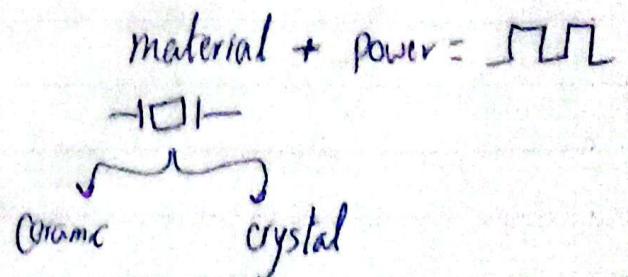 material + power =
ceramic crystal